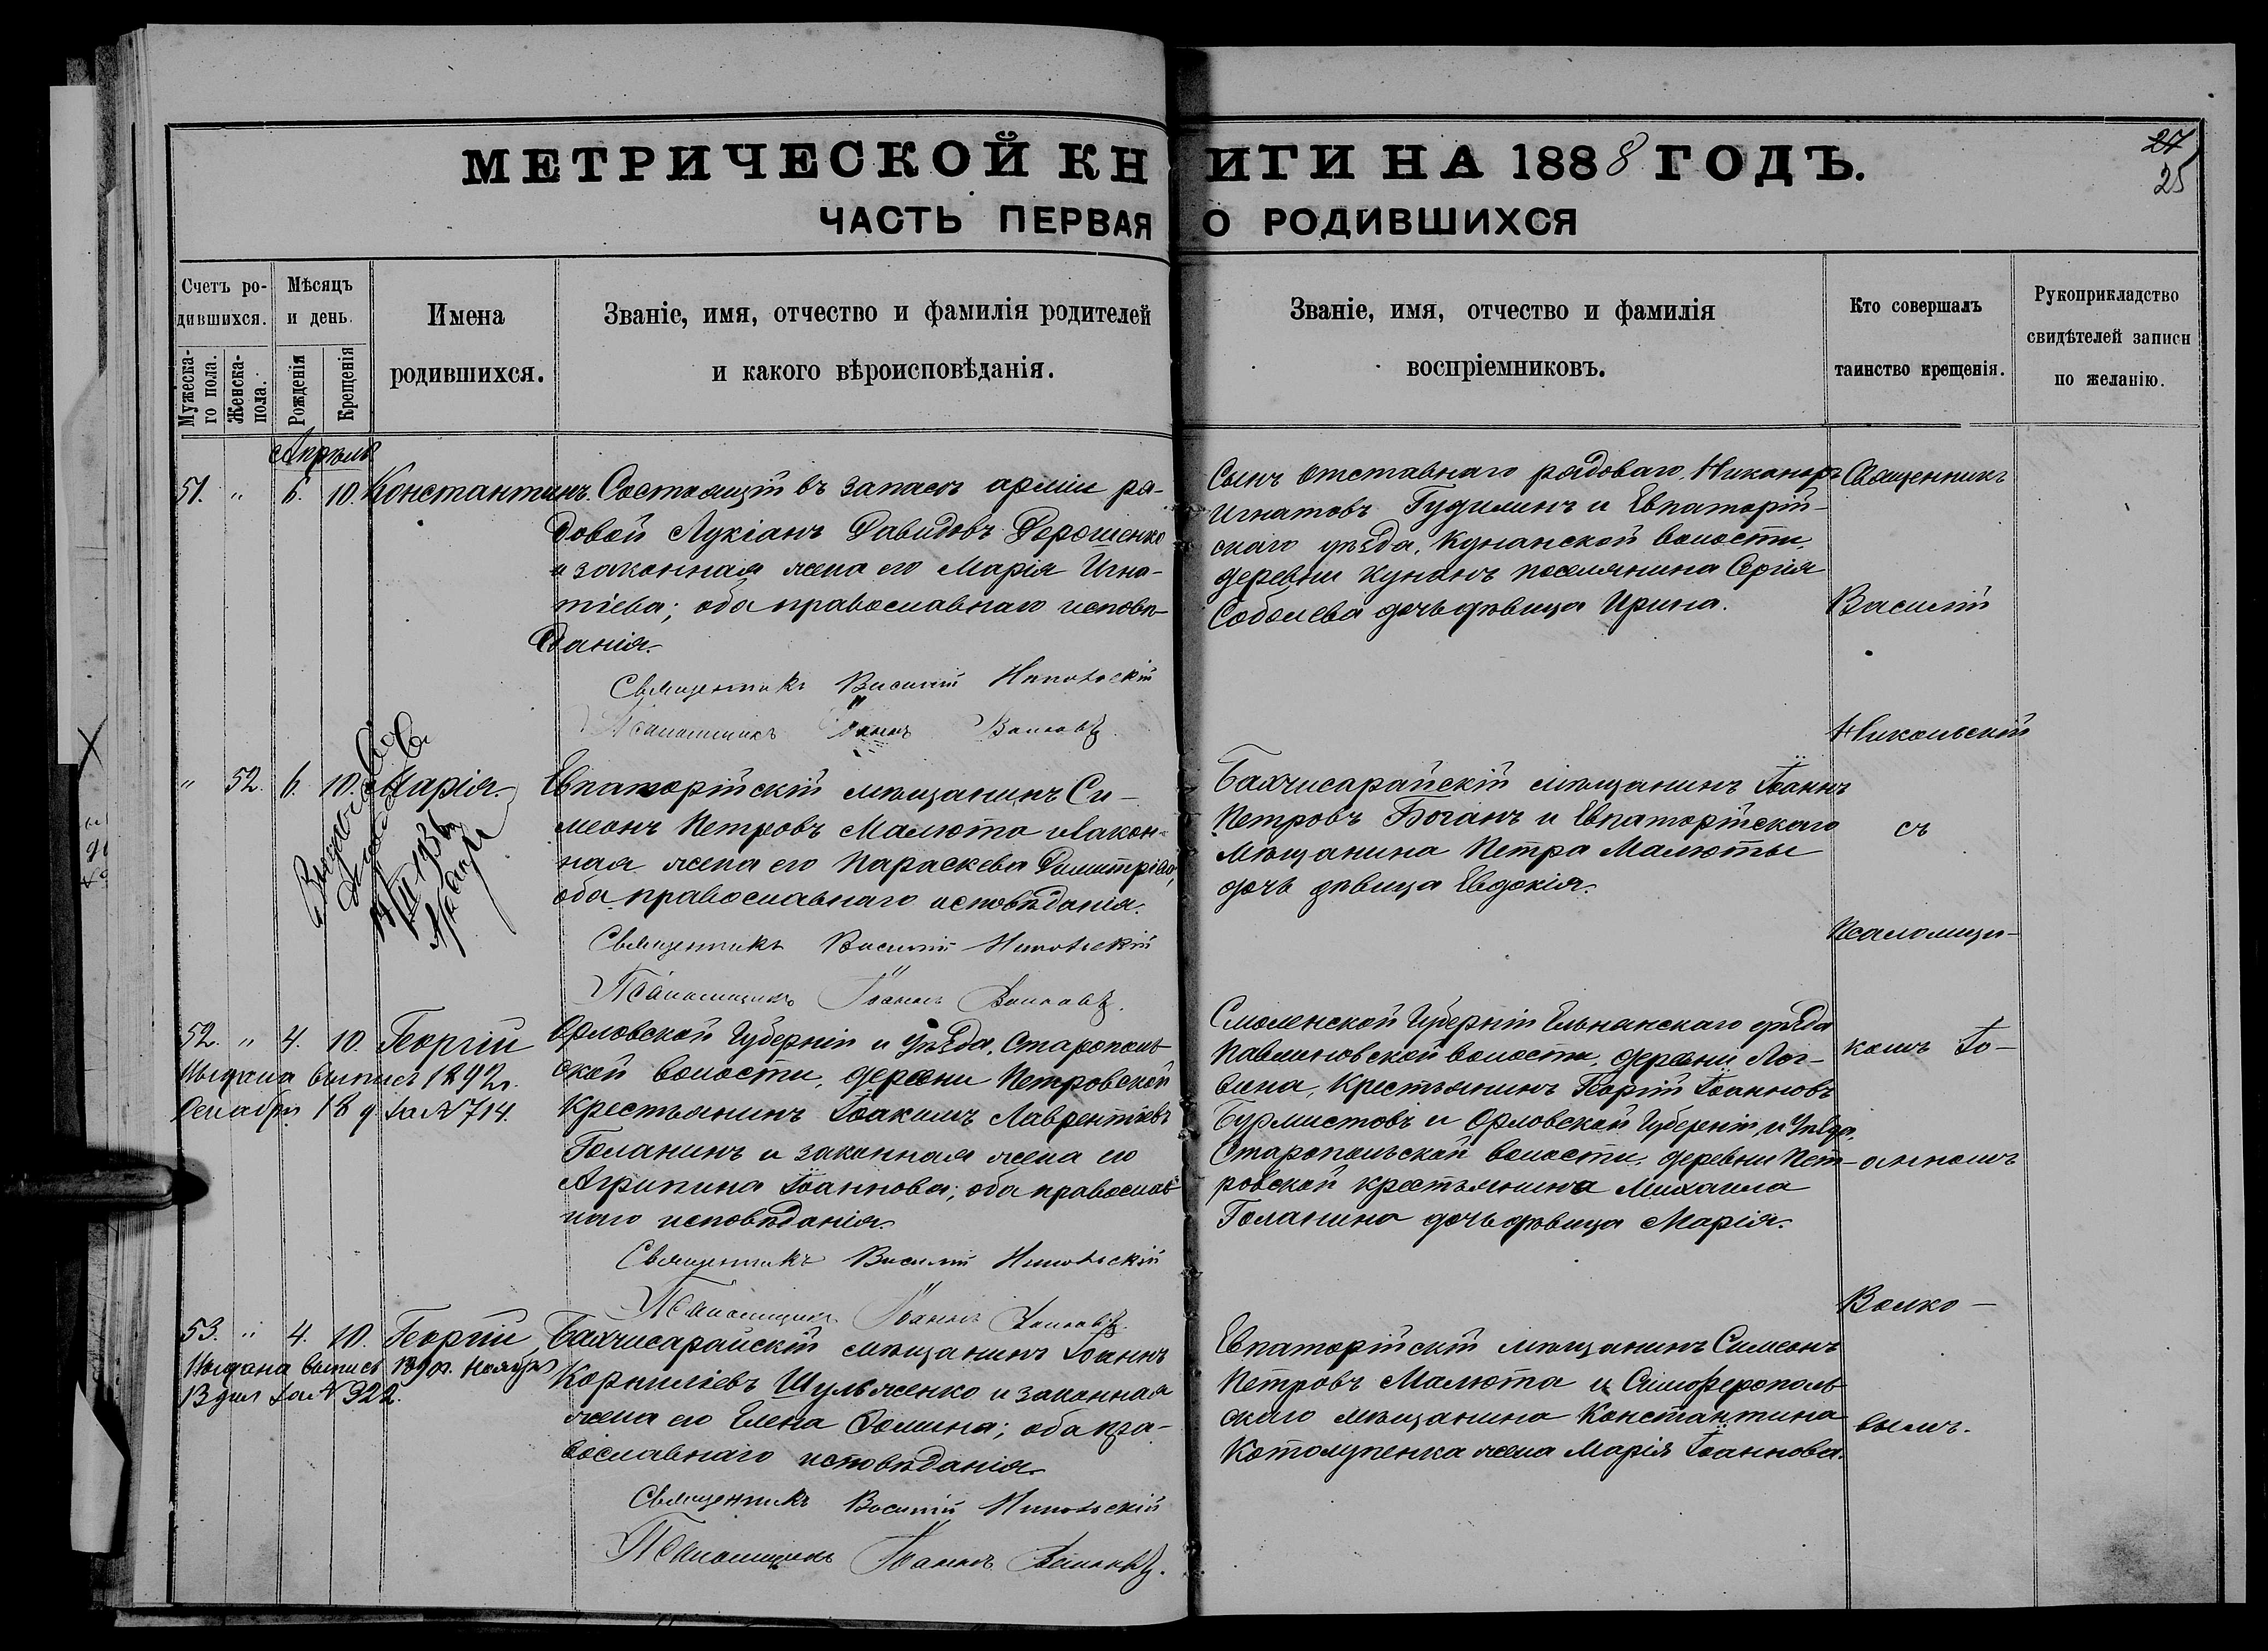 МЕТРИЧЕСКОЙ КНИГИ НА 1888 ГОДЪ.
27
25
ЧАСТЬ ПЕРВАЯ О РОДИВШИХСЯ
Счетъ родившихся.
Мужеска-го пола.
Женска- пола.
Мѣсяцъ и день.
Рожденія
Крещенія
Имена
родившихся.
Званіе, имя, отчество и фамилія родителей
и какого вѣроисповѣданія.
Званіе, имя, отчество и фамилія
воспріемниковъ.
Кто совершалъ
таинство крещенія.
Рукоприкладство
свидѣтелей записи
по желанію.
Апрѣль
51. " 6. 10. Константинъ.
Состоящій въ запасѣ арміи ря-
довой Лукіанъ Давидовъ Дорошенко
и законная жена его Марія Игна-
тіева; оба православнаго исповѣ-
данія.
Священникъ Василій Никольскій
Псаломщикъ Іоаннъ Волковъ.
Сынъ отставнаго рядоваго Никаноръ
Игнатовъ Гудилинъ и Евпаторій-
скаго уѣзда, Кунанской волости,
деревни Кунанъ поселянина Сергія
Соболева дочь дѣвица Ирина.
" 52. 6. 10. Марія.
1936
Евпаторійскій мѣщанинъ Си-
меонъ Петровъ Малюта и закон-
ная жена его Параскева Димитріева,
оба православнаго исповѣданія.
Священникъ Василій Никольскій
Псаломщикъ Іоаннъ Волковъ.
Бахчисарайскій мѣщанинъ Іоаннъ
Петровъ Боганъ и Евпаторійскаго
мѣщанина Петра Малюты
дочь дѣвица Евдокія.
52. " 4. 10. Георгій
Выдана выпись 1892 г.
Декабря 18 д. за № 714.
Орловской Губерніи и уѣзда, Старополь-
ской волости, деревни Петровской
крестьянинъ Іоакимъ Лаврентіевъ
Голанинъ и законная жена его
Агрипина Іоаннова; оба православ-
наго исповѣданія.
Священникъ Василій Никольскій
Псаломщикъ Іоаннъ Волковъ.
Смоленской Губерніи Ельнанскаго уѣзда
Павлиновской волости, деревни Лог-
вина, крестьянинъ Георгій Іоанновъ
Бурмистовъ и Орловской Губерніи и Уѣзда,
Старопольской волости, деревни Пет-
ровской крестьянина Михаила
Голанина дочь дѣвица Марія.
53. " 4. 10. Георгій
Выдана выпись Ноября
13 дня за № 922.
Бахчисарайскій мѣщанинъ Іоаннъ
Корниліевъ Шульженко и законная
жена его Елена Ѳомина; оба пра-
вославнаго исповѣданія.
Священникъ Василій Никольскій
Псаломщикъ Іоаннъ Волковъ.
Евпаторійскій мѣщанинъ Симеонъ
Петровъ Малюта и Симферополь-
скаго мѣщанина Константина
Котолупенка жена Марія Іоаннова.
Священникъ
Василій
Никольскій
съ
Псаломщи-
комъ Іо-
анномъ
Волко-
вымъ.